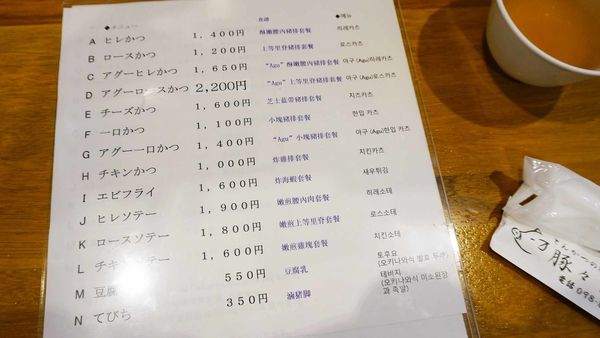 ◆メニュー 食譜 ◆메뉴
A ヒレかつ 1,400円 酥嫩腰內豬排套餐 히레카츠
B ロースかつ 1,200円 上等里脊豬排套餐 로스카츠
C アグーヒレかつ 1,650円 "Agu" 酥嫩腰內豬排套餐 아구(Agu)히레카츠
D アグーロースかつ 2,200円 "Agu" 上等里脊豬排套餐 아구(Agu)로스카츠
E チーズかつ 1,600円 芝士藍帶豬排套餐 치즈카츠
F 一口かつ 1,100円 小塊豬排套餐 한입 카츠
G アグー一口かつ 1,400円 "Agu" 小塊豬排套餐 아구(Agu)한입 카츠
H チキンかつ 1,000円 炸雞排套餐 치킨카츠
I エビフライ 1,600円 炸海蝦套餐 새우튀김
J ヒレソテー 1,900円 嫩煎腰內肉套餐 히레소테
K ロースソテー 1,800円 嫩煎上等里脊套餐 로스소테
L チキンソテー 1,600円 嫩煎雞塊套餐 치킨소테
M 豆腐 550円 豆腐乳 토후요
(오키나와식 발효 두부)
N てびち 350円 滷豬脚 테비치
(오키나와식 미소된장
과 족발)
とんかつの
豚々
電話 098-